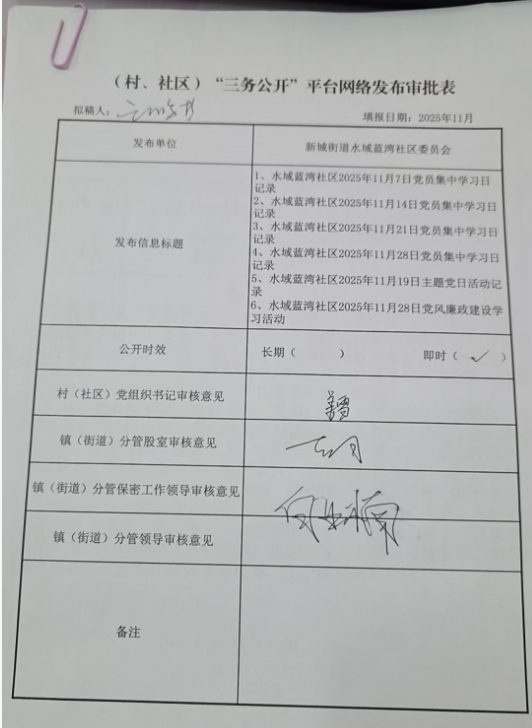 （村、社区）“三务公开”平台网络发布审批表
拟稿人：
填报日期：2025年11月
发布单位
新城街道水域蓝湾社区委员会
发布信息标题
1、水域蓝湾社区2025年11月7日党员集中学习日
记录
2、水域蓝湾社区2025年11月14日党员集中学习日
记录
3、水域蓝湾社区2025年11月21日党员集中学习日
记录
4、水域蓝湾社区2025年11月28日党员集中学习日
记录
5、水域蓝湾社区2025年11月19日主题党日活动记
录
6、水域蓝湾社区2025年11月28日党风廉政建设学
习活动
公开时效
长期（ ）
即时（ ✓ ）
村（社区）党组织书记审核意见
镇（街道）分管股室审核意见
镇（街道）分管保密工作领导审核意见
镇（街道）分管领导审核意见
备注